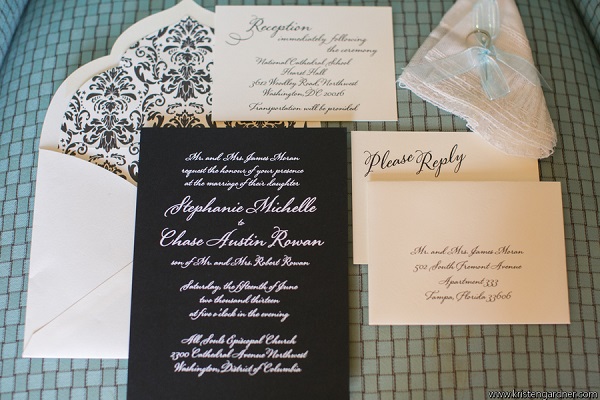 Reception
immediately following
the ceremony
National Cathedral, School
Hearst Hall
3612 Woodley Road, Northwest
Washington, DC 20016
Transportation will be provided
Mr. and Mrs. James Moran
request the honour of your presence
at the marriage of their daughter
Stephanie Michelle
to
Chase Austin Rowan
son of Mr. and Mrs. Robert Rowan
Saturday, the fifteenth of June
two thousand thirteen
at five o'clock in the evening
All Souls Episcopal Church
2300 Cathedral Avenue Northwest
Washington, District of Columbia
Please Reply
Mr. and Mrs. James Moran
502 South Fremont Avenue
Apartment 333
Tampa, Florida 33606
www.kristengardner.com